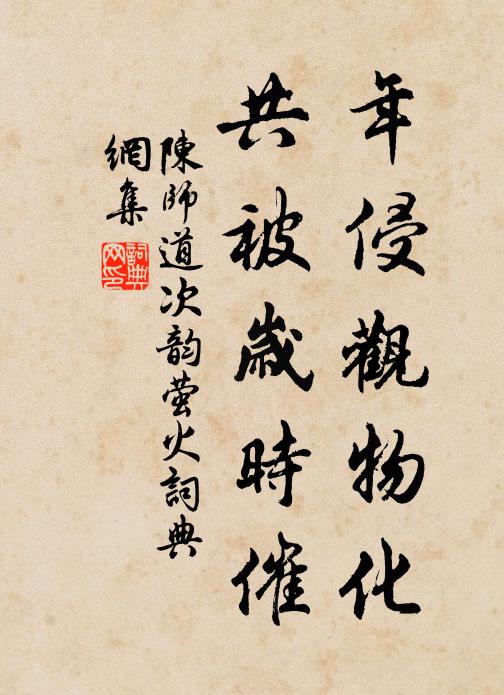 年侵觀物化
共被歲時催
陳師道次韵螢火詞典
網集
詞典
网印